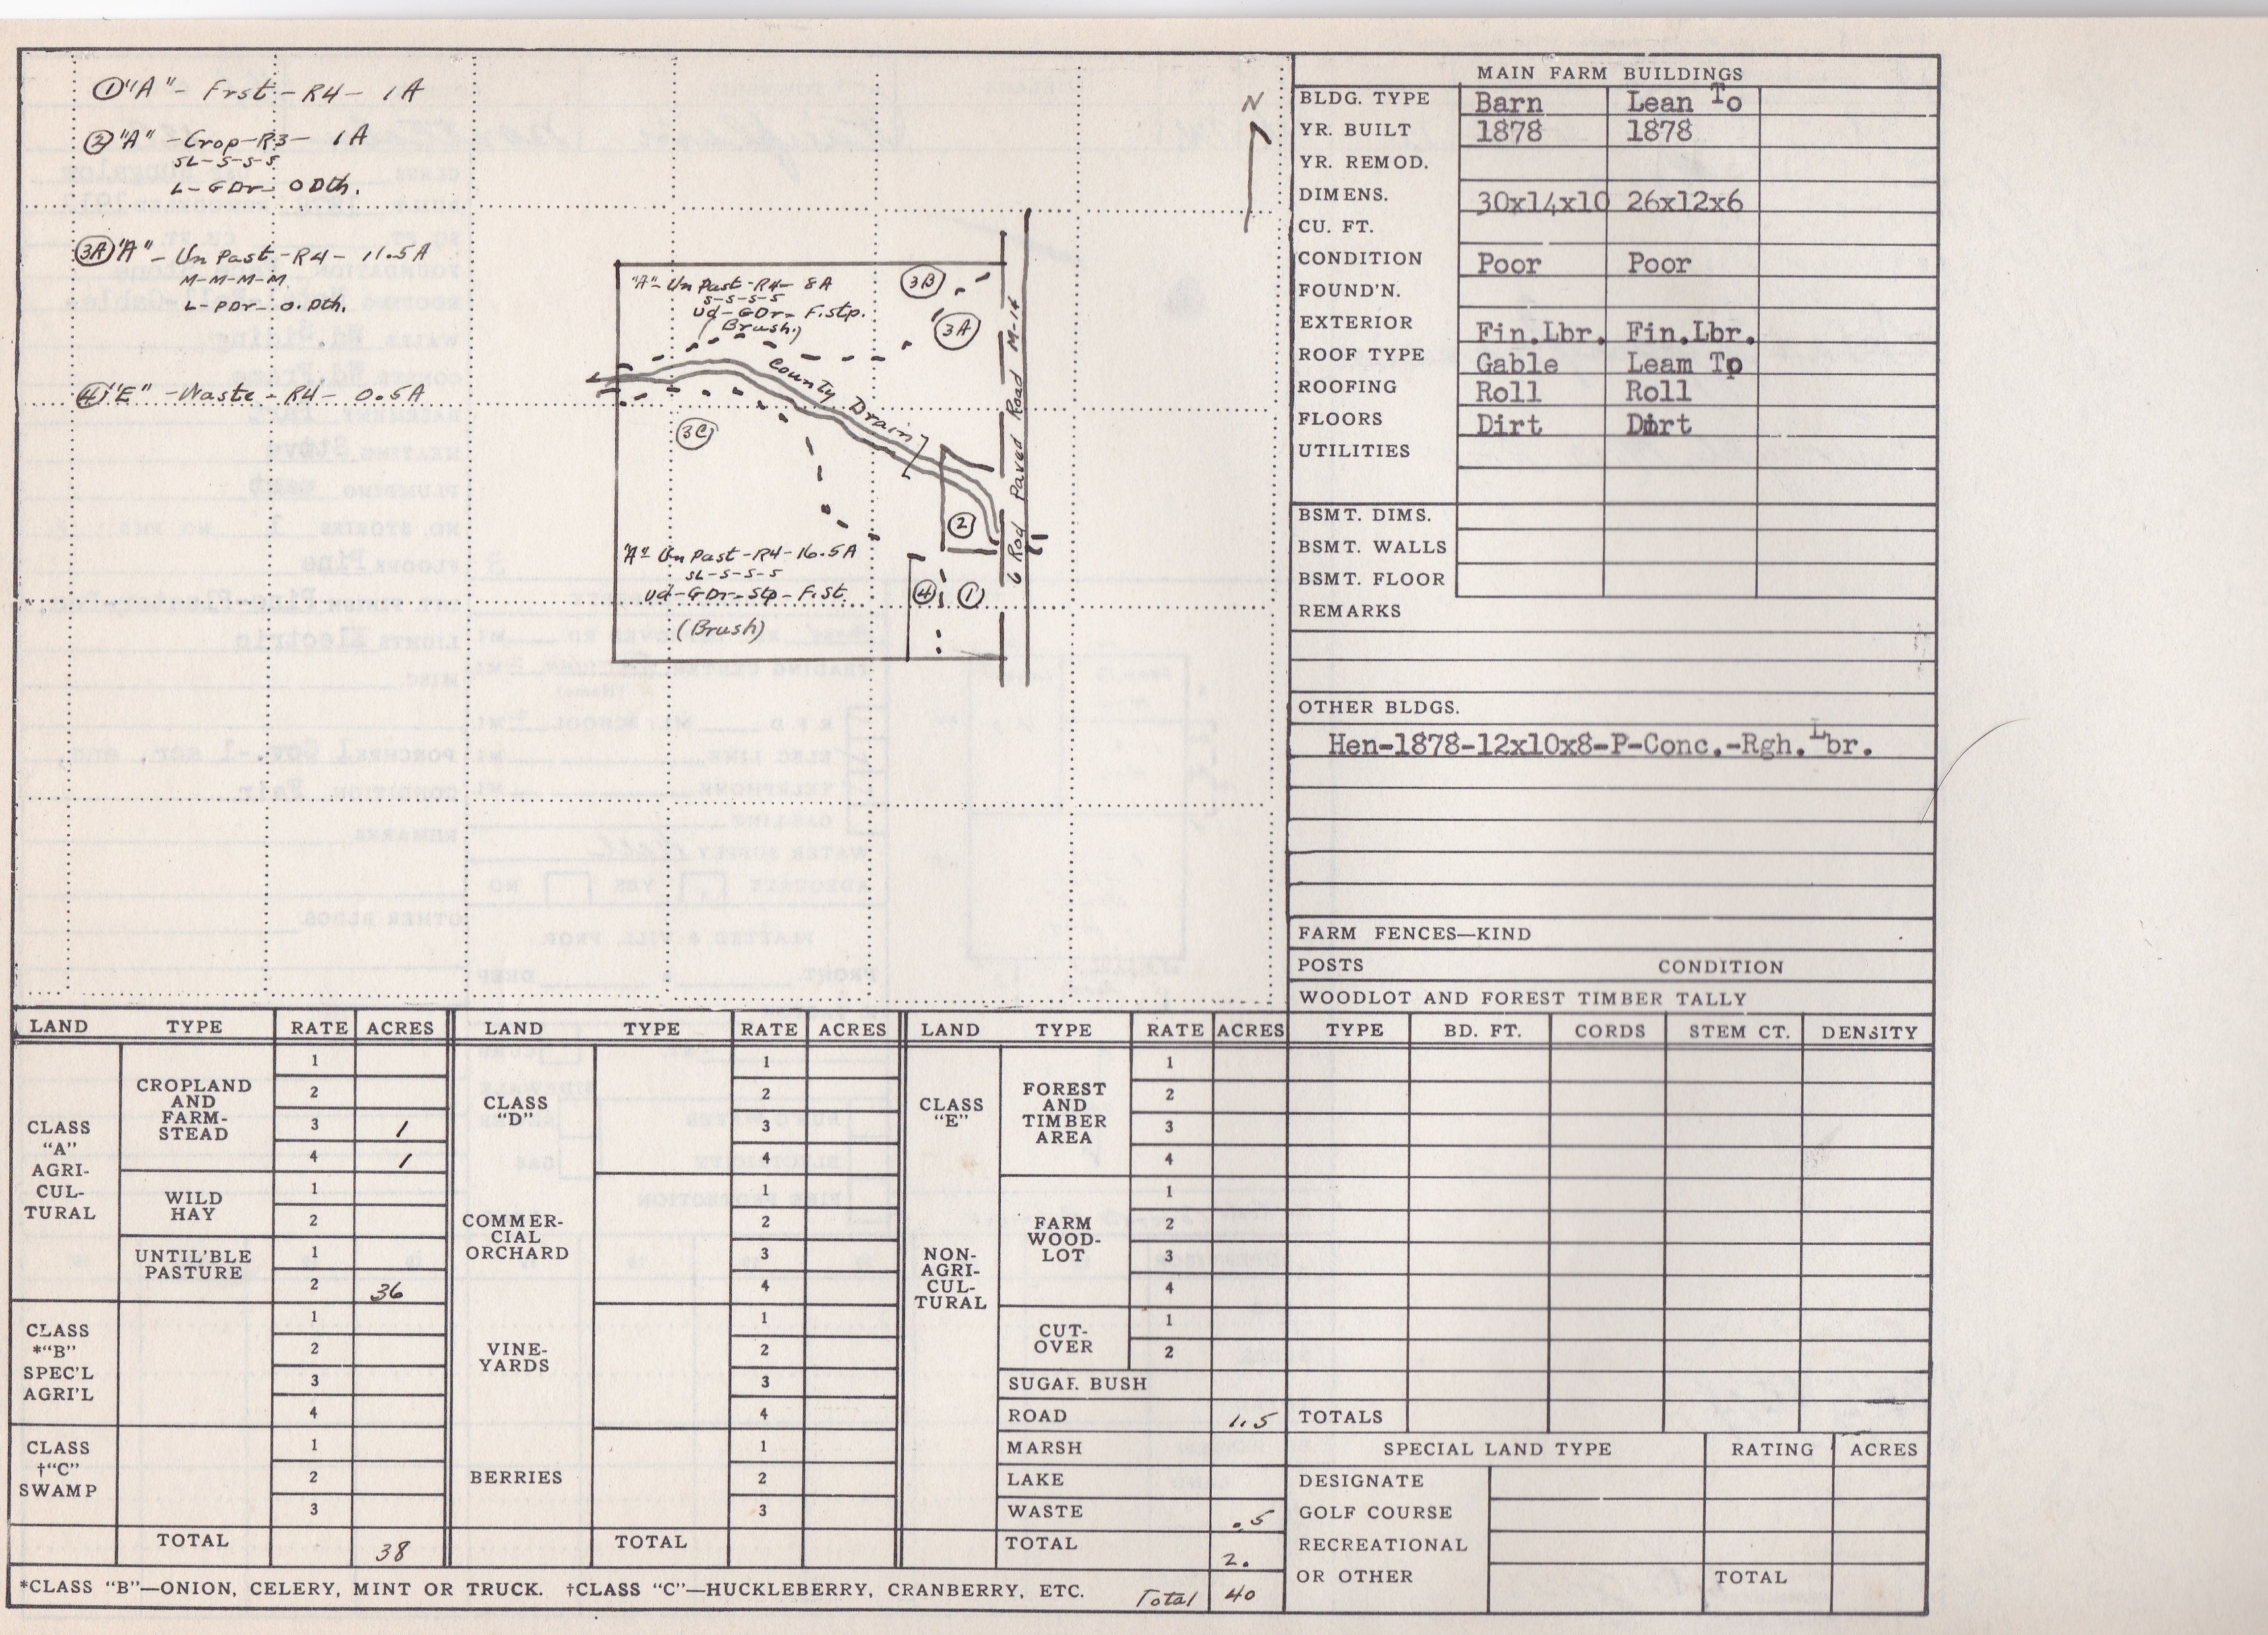 ①"A" - Frst - R4 - 1A
② "A" - Crop - R3 - 1A
SL-S-S-S
L-GDr- ODth.
③A "A" - Un Past. - R4 - 11.5A
M-M-M-M
L-PDr- O.Dth.
④ "E" - Waste - R4 - 0.5A
N
"A" Un Past-R4- 8A
S-S-S-S
Ud-GDr- F.stp.
(Brush.)
3B
3A
County Drain
3C
6 Rod Paved Road M-14
2
"A" Un Past-R4-16.5A
SL-S-S-S
Ud-GDr-Stp-F.St.
(Brush)
4 1
MAIN FARM BUILDINGS
BLDG. TYPE Barn Lean To
YR. BUILT 1878 1878
YR. REMOD.
DIMENS. 30x14x10 26x12x6
CU. FT.
CONDITION Poor Poor
FOUND'N.
EXTERIOR Fin.Lbr. Fin.Lbr.
ROOF TYPE Gable Leam To
ROOFING Roll Roll
FLOORS Dirt Dirt
UTILITIES
BSMT. DIMS.
BSMT. WALLS
BSMT. FLOOR
REMARKS
OTHER BLDGS.
Hen-1878-12x10x8-P-Conc.-Rgh. Lbr.
FARM FENCES—KIND
POSTS CONDITION
WOODLOT AND FOREST TIMBER TALLY
TYPE BD. FT. CORDS STEM CT. DENSITY
TOTALS
SPECIAL LAND TYPE RATING ACRES
DESIGNATE
GOLF COURSE
RECREATIONAL
OR OTHER TOTAL
LAND TYPE RATE ACRES
CLASS
"A"
AGRI-
CUL-
TURAL
CROPLAND
AND
FARM-
STEAD
1
2
3 1
4 1
WILD
HAY
1
2
UNTIL'BLE
PASTURE
1
2 36
CLASS
*"B"
SPEC'L
AGRI'L
1
2
3
4
CLASS
†"C"
SWAMP
1
2
3
TOTAL 38
LAND TYPE RATE ACRES
CLASS
"D"
1
2
3
4
COMMER-
CIAL
ORCHARD
1
2
3
4
VINE-
YARDS
1
2
3
4
BERRIES
1
2
3
TOTAL
LAND TYPE RATE ACRES
CLASS
"E"
NON-
AGRI-
CUL-
TURAL
FOREST
AND
TIMBER
AREA
1
2
3
4
FARM
WOOD-
LOT
1
2
3
4
CUT-
OVER
1
2
SUGAR BUSH
ROAD 1.5
MARSH
LAKE
WASTE .5
TOTAL 2.
*CLASS "B"—ONION, CELERY, MINT OR TRUCK. †CLASS "C"—HUCKLEBERRY, CRANBERRY, ETC. Total 40